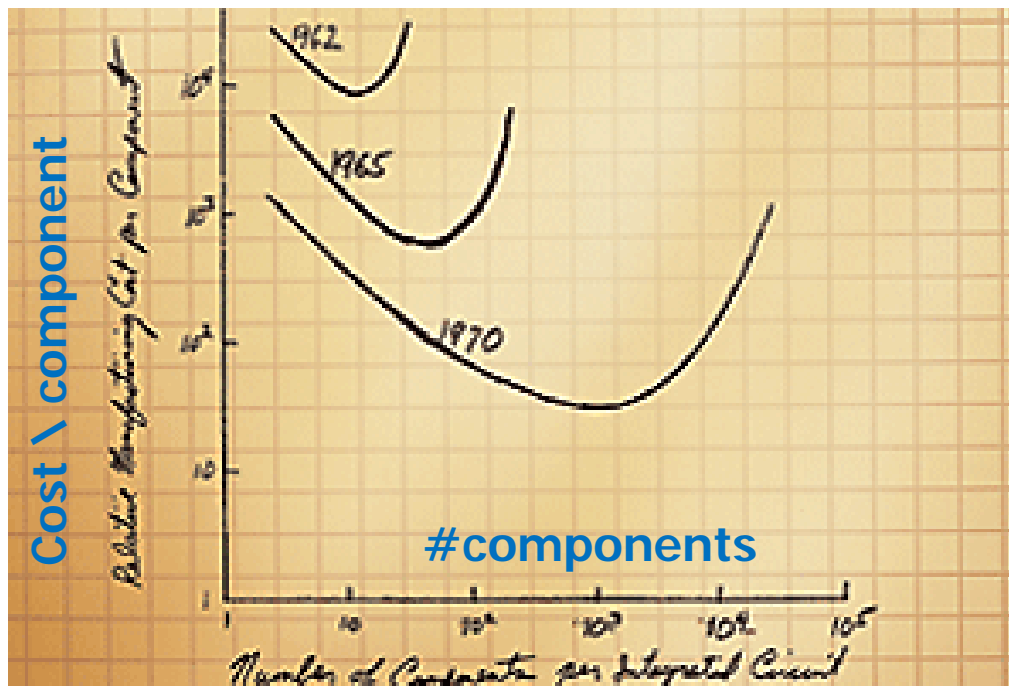 Cost \ component
Relative Manufacturing Cost per Component
10⁴
10³
10²
10
1
962
1965
1970
#components
1
10
10²
10³
10⁴
10⁵
Number of Components per Integrated Circuit